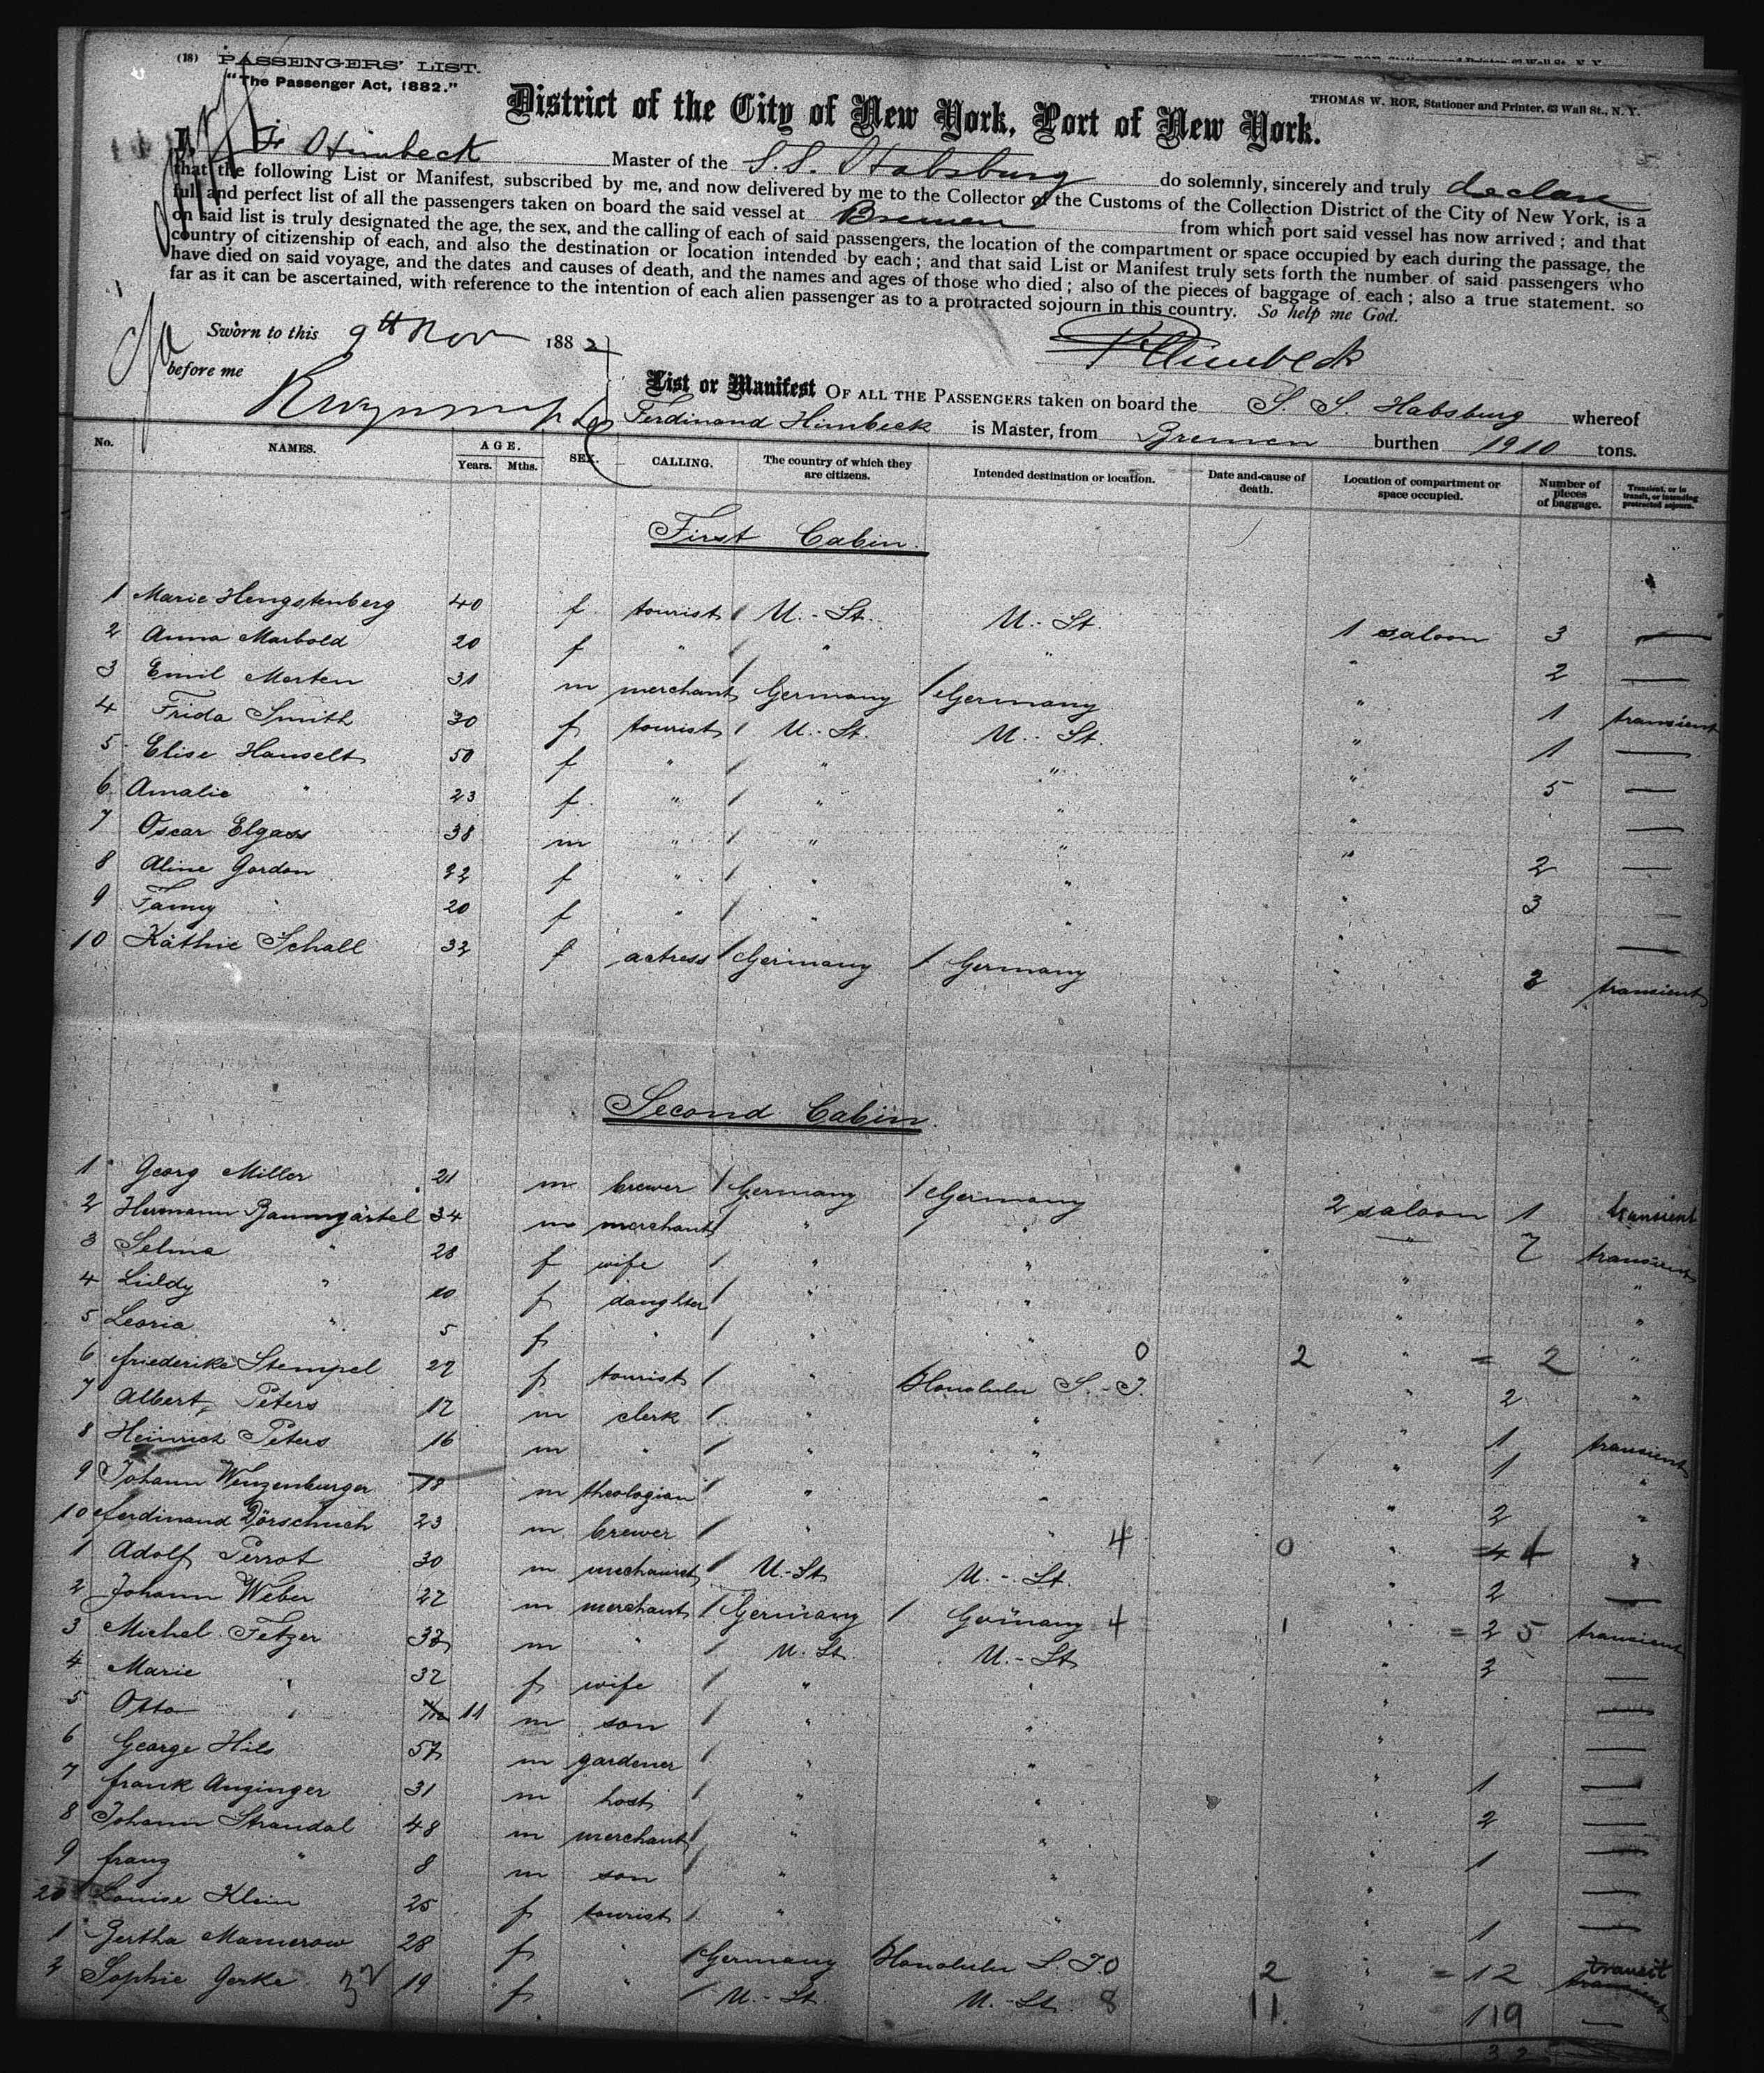 (18) PASSENGERS' LIST.
"The Passenger Act, 1882."
THOMAS W. ROE, Stationer and Printer, 63 Wall St., N. Y.
District of the City of New York, Port of New York.
I, F. Himbeck Master of the S.S. Habsburg do solemnly, sincerely and truly declare
that the following List or Manifest, subscribed by me, and now delivered by me to the Collector of the Customs of the Collection District of the City of New York, is a
full and perfect list of all the passengers taken on board the said vessel at Bremen from which port said vessel has now arrived; and that
on said list is truly designated the age, the sex, and the calling of each of said passengers, the location of the compartment or space occupied by each during the passage, the
country of citizenship of each, and also the destination or location intended by each; and that said List or Manifest truly sets forth the number of said passengers who
have died on said voyage, and the dates and causes of death, and the names and ages of those who died; also of the pieces of baggage of each; also a true statement, so
far as it can be ascertained, with reference to the intention of each alien passenger as to a protracted sojourn in this country. So help me God.
Sworn to this 9th Nov 1882
before me
F Himbeck
List or Manifest OF ALL THE PASSENGERS taken on board the S. S. Habsburg whereof
Ferdinand Himbeck is Master, from Bremen burthen 1910 tons.
No. NAMES. AGE. Years. Mths. SEX. CALLING. The country of which they are citizens. Intended destination or location. Date and cause of death. Location of compartment or space occupied. Number of pieces of baggage. Transient, or in transit, or intending protracted sojourn.
First Cabin.
1 Marie Hengstenberg 40 f tourist U.-St. U.-St. 1 saloon 3 —
2 Anna Marbold 20 f " " " " 2 —
3 Emil Merten 31 m merchant Germany Germany " 1 transient
4 Frida Smith 30 f tourist U.-St. U.-St. " 1 —
5 Elise Hanselt 50 f " " " " 5 —
6 Amalie " 23 f " " " " —
7 Oscar Elgass 38 m " " " " 2 —
8 Aline Gordon 32 f " " " " 3 —
9 Fanny " 20 f " " " " —
10 Käthie Schall 32 f actress Germany Germany " 2 transient
Second Cabin.
1 Georg Miller 21 m brewer Germany Germany 2 saloon 1 transient
2 Hermann Baumgärtel 34 m merchant " " " 7 transient
3 Selma " 28 f wife " " " "
4 Liddy " 10 f daughter " " " "
5 Leoria " 5 f " " " 0 2 " = 2 "
6 Friederike Stempel 27 f tourist " Honolulu S.-I. " 2 "
7 Albert Peters 17 m clerk " " " 1 transient
8 Heinrich Peters 16 m " " " " 1 "
9 Johann Wenzenburger 18 m theologian " " " 2 "
10 Ferdinand Dörschuch 23 m brewer " " 4 0 " "
1 Adolf Perrot 30 m mechanist U.-St. U.-St. " 2 —
2 Johann Weber 27 m merchant Germany Germany 4 1 " = 2 5 transient
3 Michel Fetzer 37 m " U. St. U.-St. " 2 —
4 Marie " 32 f wife " " " —
5 Otto " 11 m son " " " —
6 George Hils 57 m gardener " " " 1 —
7 Frank Anginger 31 m host " " " 2 —
8 Johann Strandal 48 m merchant " " " 1 —
9 Franz " 8 m son " " " —
20 Louise Klein 25 f tourist " " " 1 —
1 Bertha Mamerow 28 f " Germany Honolulu S. I. 0 2 " = 12 transit
2 Sophie Gerke 32 19 f " U.-St. U.-St. 8 11. " 119 —
32